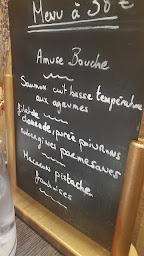 Menu à 38€
Amuse Bouche
Saumon cuit basse température
aux agrumes
Filet de
daurade, purée poivrons
aubergines parmesanes
Macaron pistache
framboises